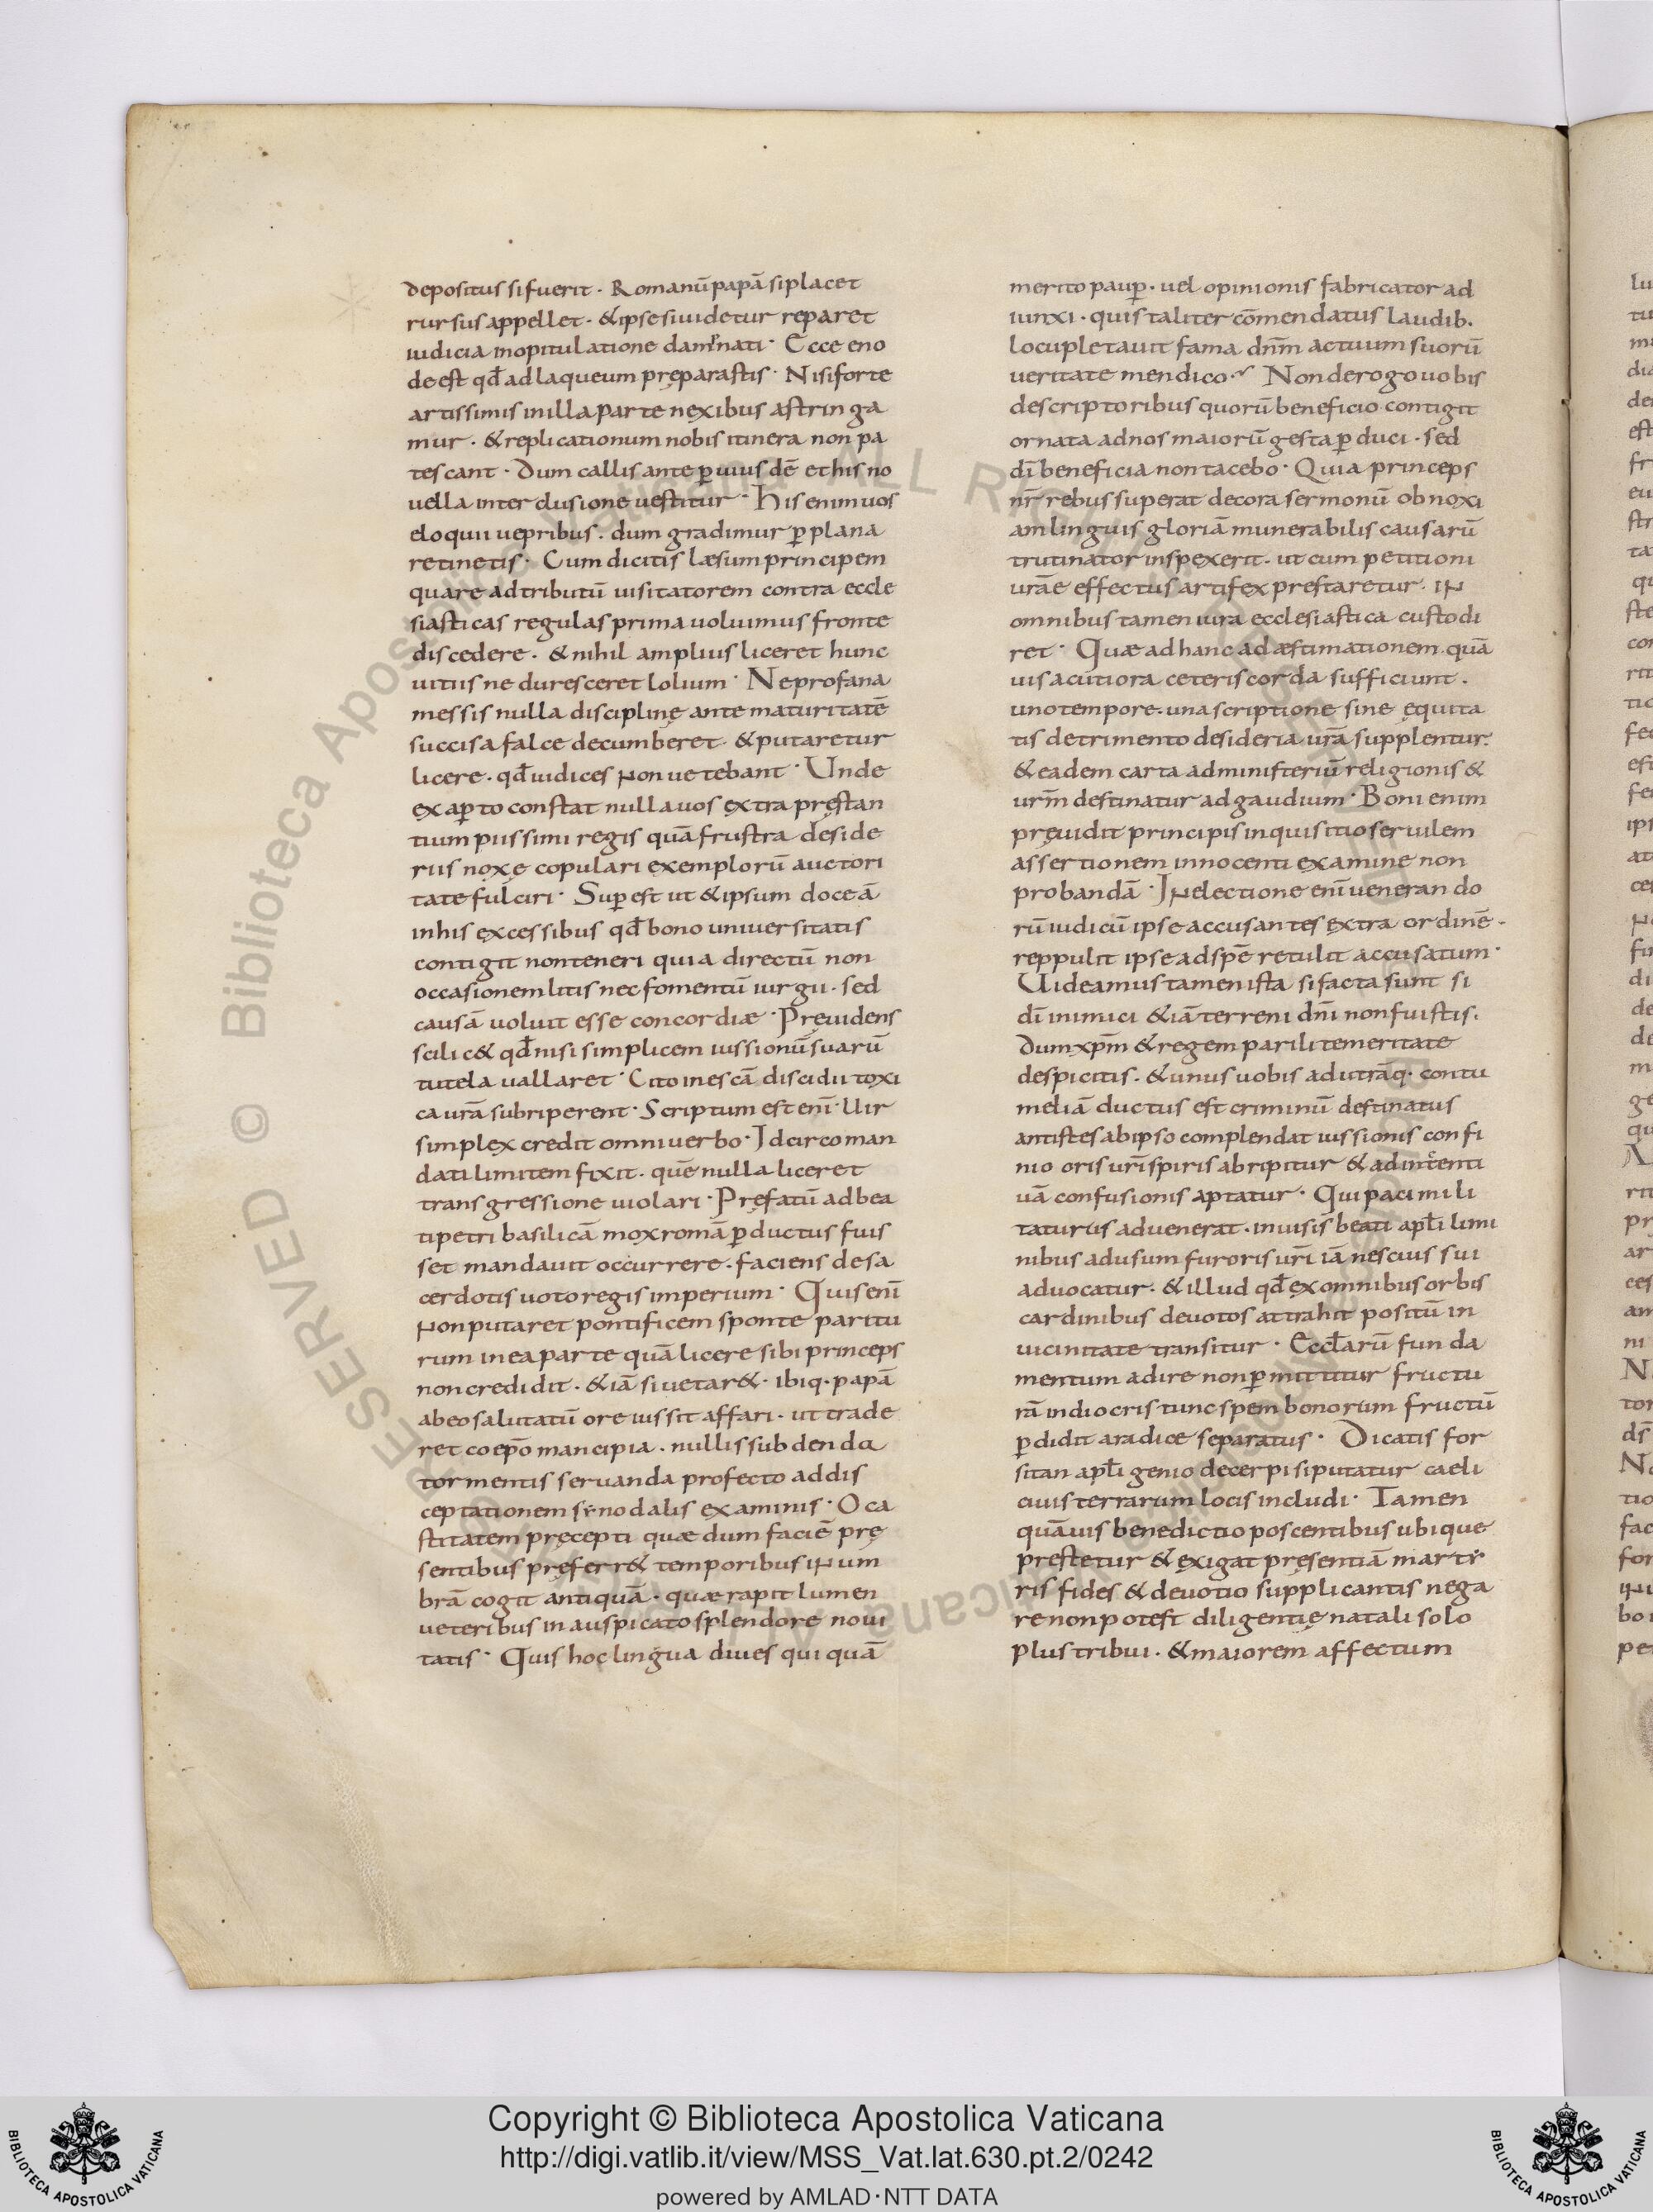 depositus si fuerit · Romanū papā si placet
rursus appellet · & ipse si uidetur reparet
iudicia inopitulatione damnati · Ecce eno
de est qđ ad laqueum pręparastis · Nisi forte
artissimis in illa parte nexibus astringa
mur · & replicationum nobis itinera non pa
tescant · Dum callis ante ꝑuius dē et his no
uella inter clusione uestitur · His enim uos
eloquii uepribus · dum gradimur ꝑ plana
retinetis · Cum dicitis læsum principem
quare adtributū uisitatorem contra eccle
siasticas regulas prima uoluimus fronte
discedere · & nihil amplius liceret hunc
uitiis ne duresceret lolium · Ne profana
messis nulla disciplinę ante maturitatē
succisa falce decumberet · & putaretur
licere · qđ iudices non uetebant · Unde
ex aꝑto constat nulla uos extra pręstan
tium piissimi regis quā frustra deside
riis noxę copulari exemplorū auctori
tate fulciri · Suꝑ est ut & ipsum doceā
in his excessibus qđ bono uniuersitatis
contigit non teneri quia directū non
occasionem litis nec fomentū iurgii · sed
causā uoluit esse concordiæ · Pręuidens
scilic& qđ nisi simplicem iussionū suarū
tutela uallaret · Cito in escā discidii toxi
ca urā subriperent · Scriptum est enī · Uir
simplex credit omni uerbo · Idcirco man
dati limitem fixit · quē nulla liceret
transgressione uiolari · Pręfatū ad bea
ti petri basilicā mox romā ꝑductus fuis
set mandauit occurrere · faciens de sa
cerdotis uoto regis imperium · Quis enī
non putaret pontificem sponte paritu
rum in ea parte quā licere sibi princeps
non credidit · & iā si uetar& · ibiq · papā
ab eo salutatū ore iussit affari · ut trade
ret coepō mancipia · nullis subdenda
tormentis seruanda profecto ad dis
ceptationem synodalis examinis · O ca
stitatem pręcepti quæ dum faciē prę
sentibus pręferr& temporibus in um
brā cogit antiquā · quæ rapit lumen
ueteribus inauspicato splendore noui
tatis · Quis hoc lingua diues qui quā
merito pauꝑ · uel opinionis fabricator ad
iunxi · quis taliter cōmendatus laudib.
locupletauit fama dnm̄ actuum suorū
ueritate mendico · Non derogo uobis
descriptoribus quorū beneficio contigit
ornata ad nos maiorū gesta ꝑduci · sed
dī beneficia non tacebo · Quia princeps
nr̄ rebus superat decora sermonū obnoxi
am linguis gloriā munerabilis causarū
trutinator inspexerit · ut cum petitioni
urāe effectus artifex prestaretur · in
omnibus tamen iura ecclesiastica custodi
ret · Quæ ad hanc ad æstimationem quā
uis acutiora ceteris corda sufficiunt ·
uno tempore · una scriptione sine ęquita
tis detrimento desideria urā supplentur.
& eadem carta ad ministeriū religionis &
urm̄ destinatur ad gaudium · Boni enim
pręuidit principis inquisitio seruilem
assertionem innocenti examine non
probandā · In electione enī uenerando
rū iudicū ipse accusantes extra ordinē ·
reppulit ipse ad spē retulit accusatum ·
Uideamus tamen ista si facta sunt si
dī inimici & iā terreni dnī non fuistis.
Dum xpm̄ & regem parili temeritate
despicitis · & unus uobis ad utrāq · contu
meliā ductus est criminū destinatus
antistes ab ipso complendat iussionis confi
nio oris urī spiris abripitur & ad intenti
uā confusionis aptatur · Qui paci mili
taturus aduenerat · inuisis beati apłi limi
nibus ad usum furoris urī iā nescius sui
aduocatur · & illud qđ ex omnibus orbis
cardinibus deuotos attrahit positū in
uicinitate transitur · Eccłarū funda
mentum adire non ꝑmittitur fructu
rā indiocris tunc spem bonorum fructū
ꝑdidit a radice separatus · Dicatis for
sitan apłi genio decerpi si putatur caeli
ciuis terrarum locis includi · Tamen
quāuis benedictio poscentibus ubique
pręstetur & exigat pręsentiā marty
ris fides & deuotio supplicantis nega
re non potest diligentię natali solo
plus tribui · & maiorem affectum
Copyright © Biblioteca Apostolica Vaticana
http://digi.vatlib.it/view/MSS_Vat.lat.630.pt.2/0242
powered by AMLAD·NTT DATA